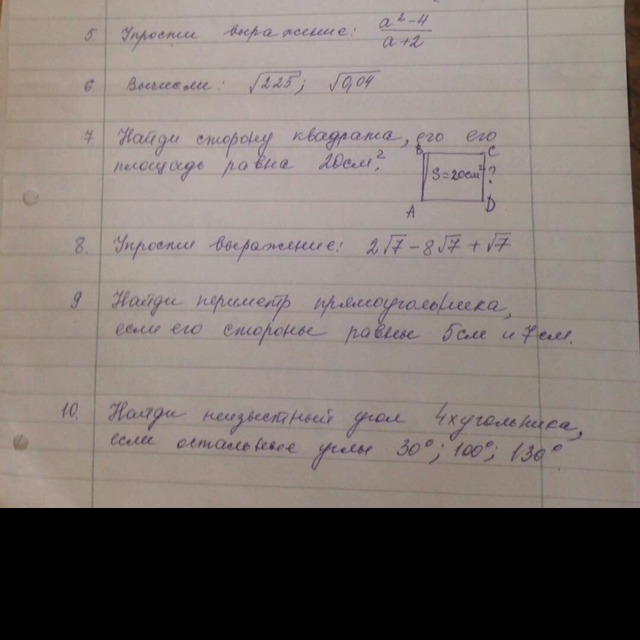 5 Упрости выражение: (a²-4)/(a+2)
6 Вычисли: √225; √0,04
7 Найди сторону квадрата, его его
площадь равна 20см².
B C
S=20см² ?
A D
8. Упрости выражение: 2√7 - 8√7 + √7
9 Найди периметр прямоугольника,
если его стороны равны 5см и 7см.
10. Найди неизвестный угол 4хугольника,
если остальные углы 30°; 100°; 130°.